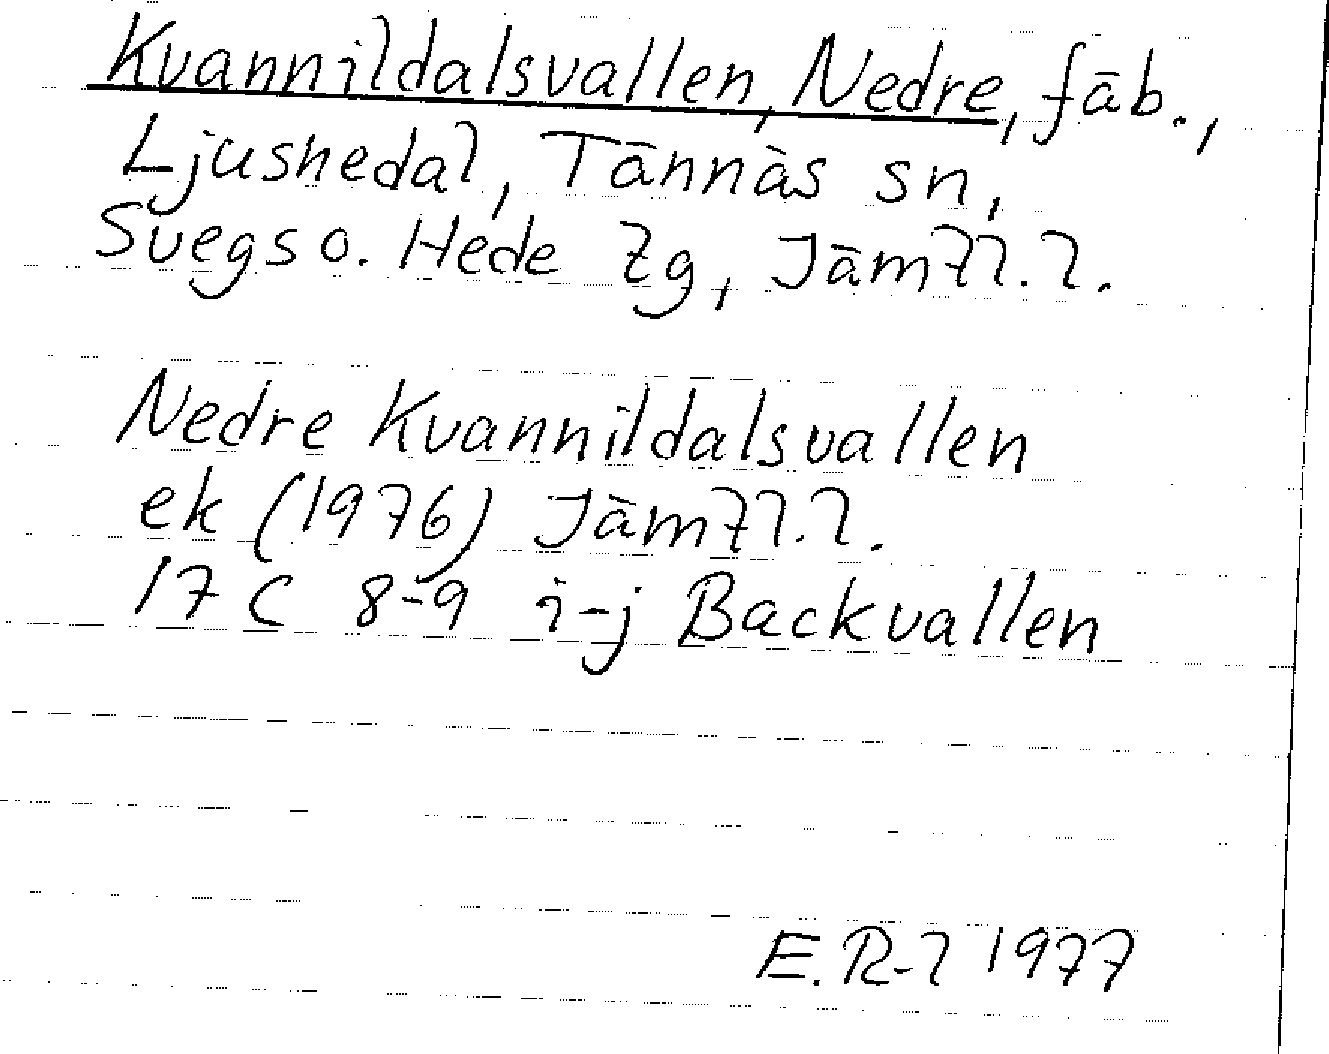 Kvannildalsvallen, Nedre, fäb.,
Ljusnedal, Tännäs sn,
Svegs o. Hede tg, Jämtl. l.
Nedre Kvannildalsvallen
ek (1976) Jämtl. l.
17 C 8-9 i-j Backvallen
E. R-l 1977